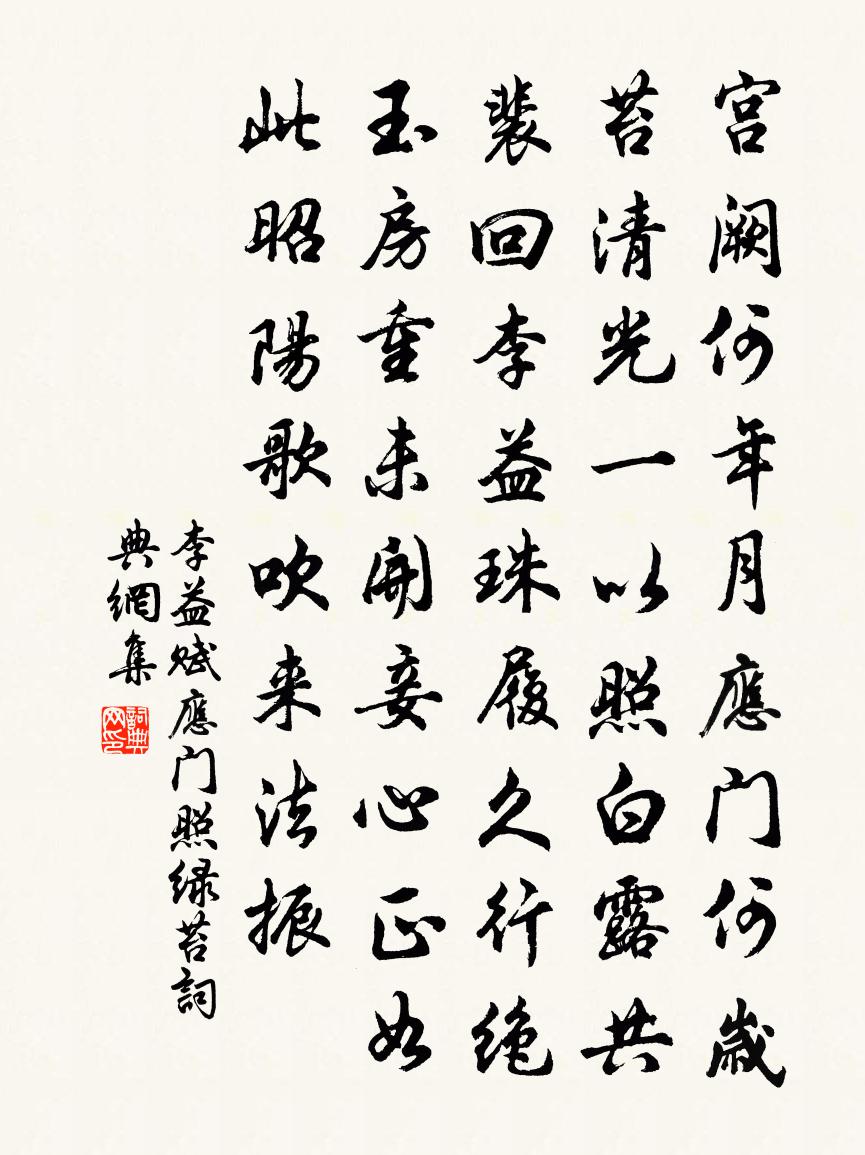 宫阙何年月應门何歲
苔清光一以照白露共
裴回李益珠履久行绝
玉房重未開妾心正如
此昭陽歌吹来法振
李益赋應门照绿苔詞
典網集
詞典网印